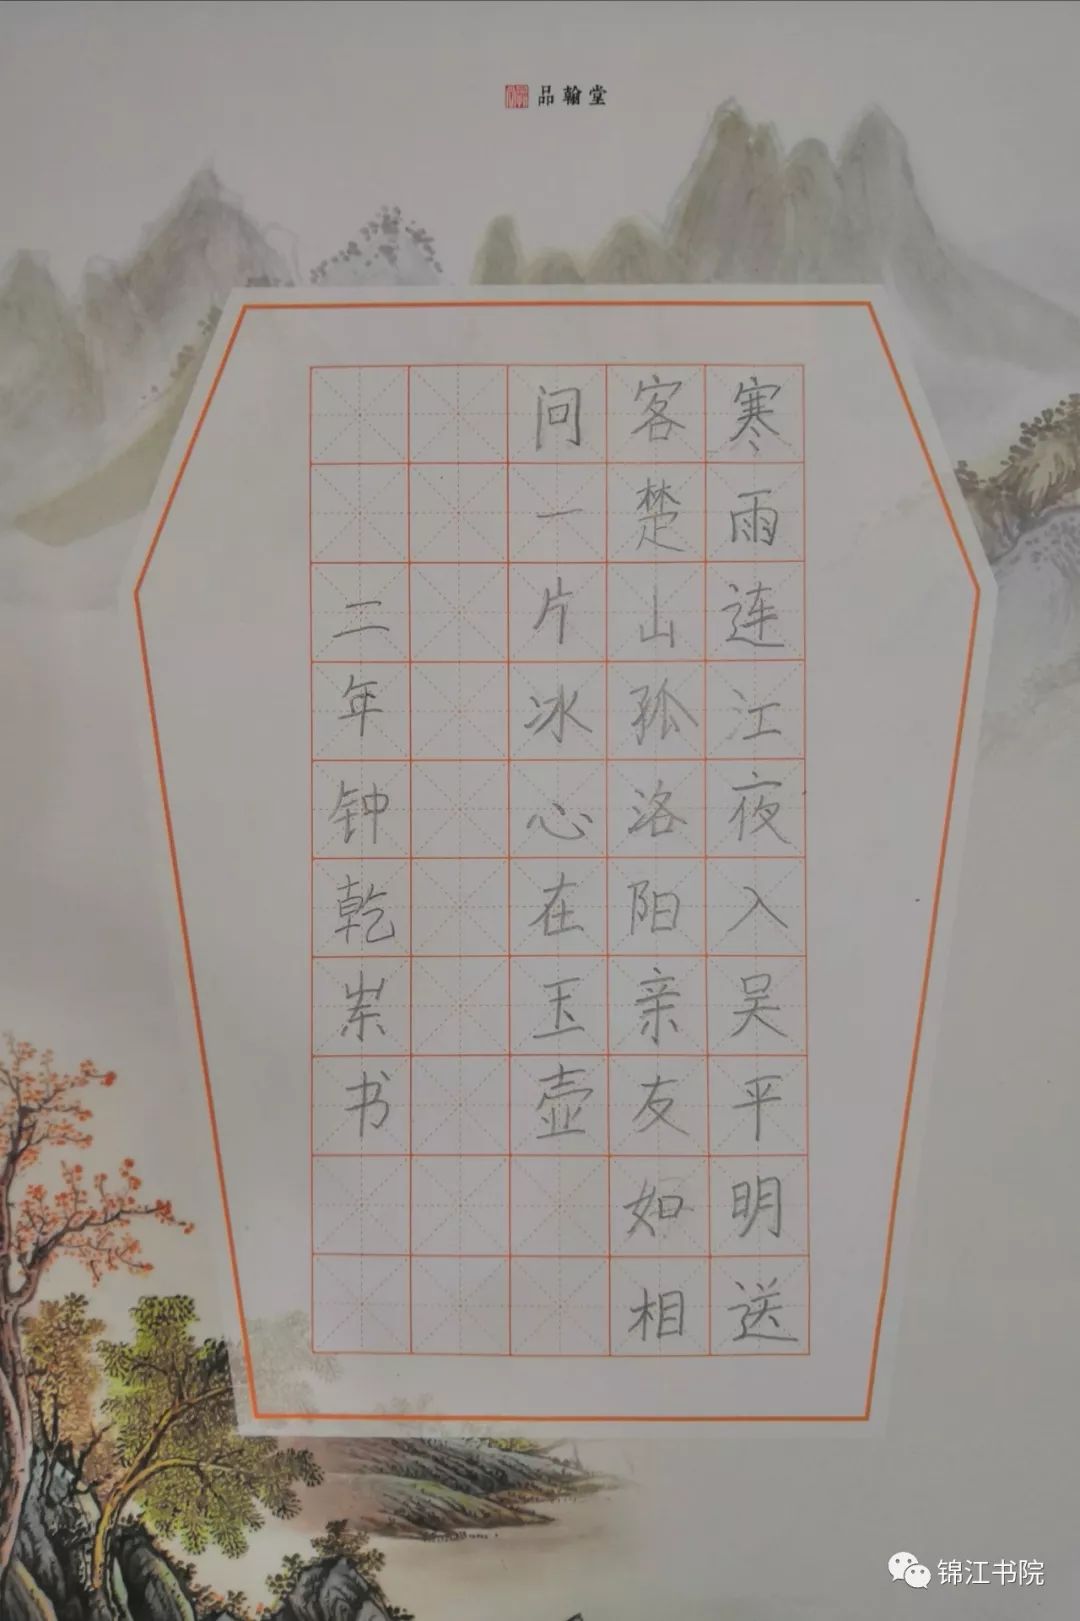 品翰堂
寒雨连江夜入吴平明送
客楚山孤洛阳亲友如相
问一片冰心在玉壶
二年钟乾岽书
锦江书院